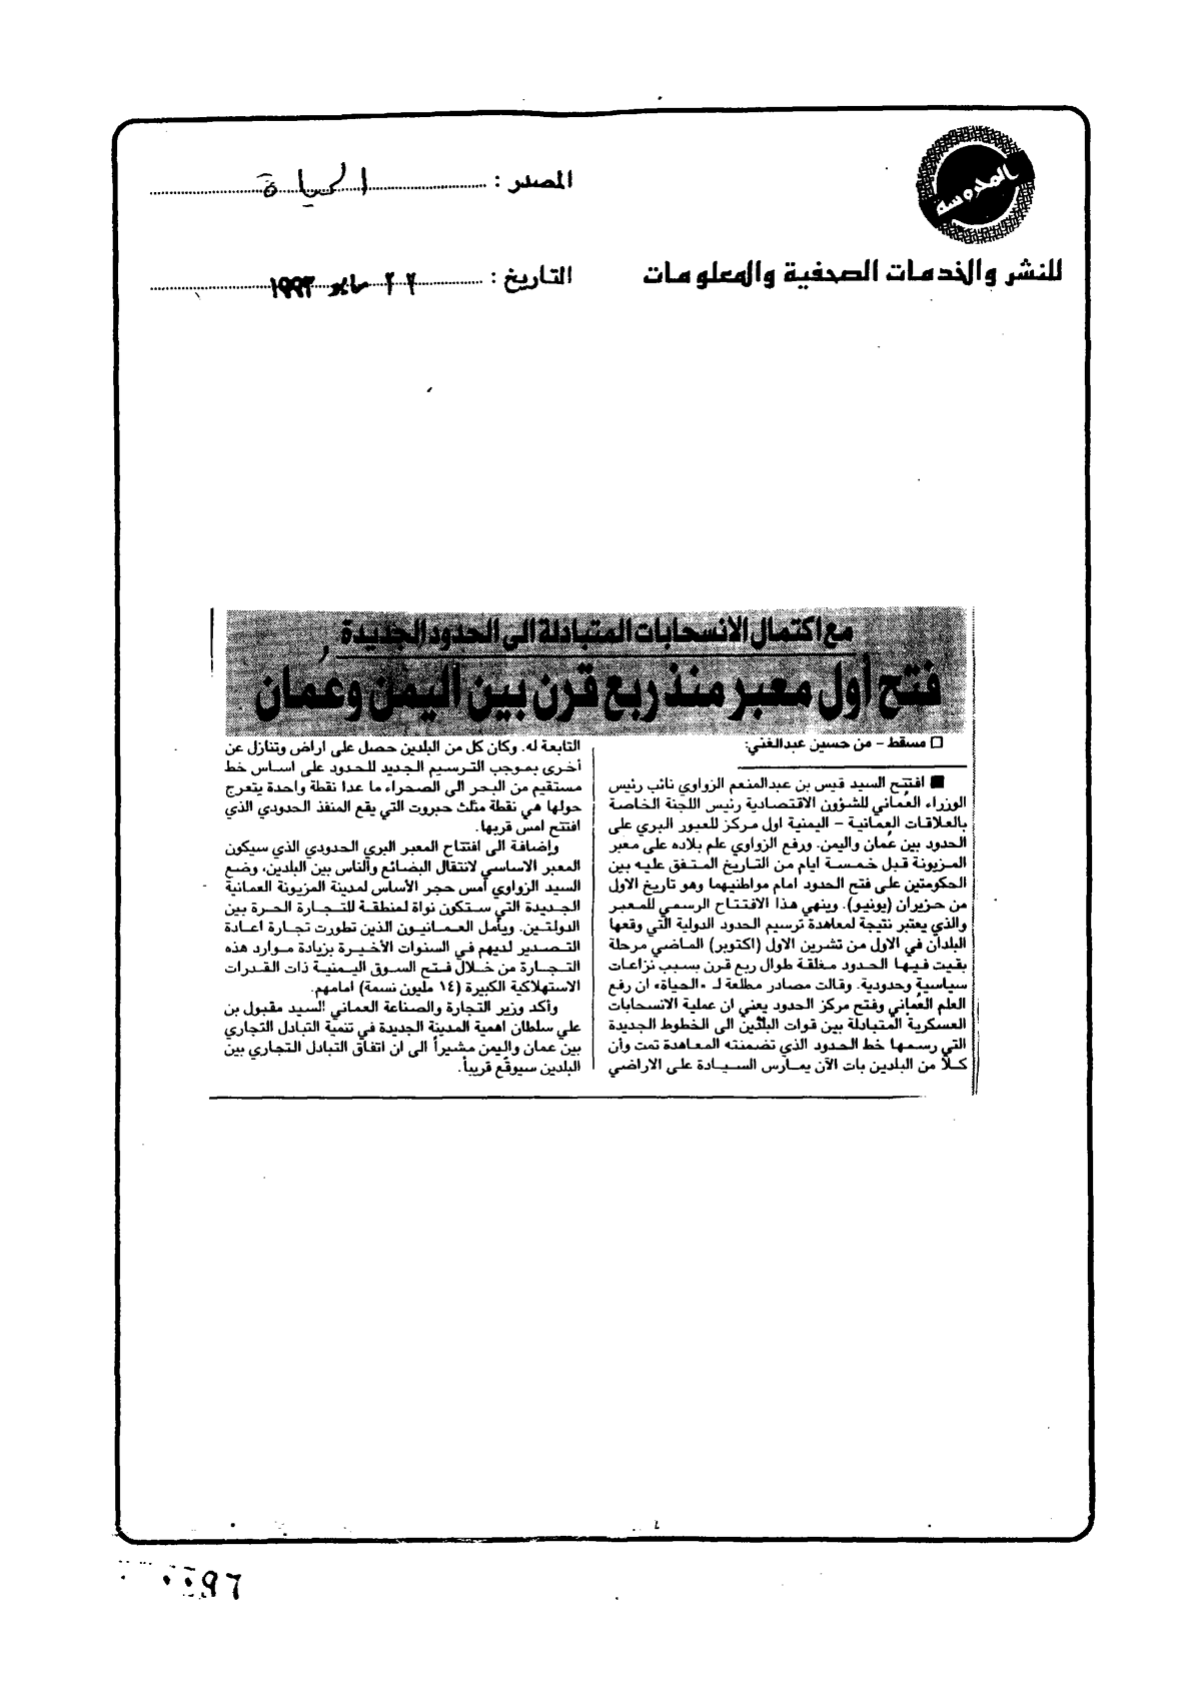 المدرسة
للنشر والخدمات الصحفية والمعلومات
المصدر : الحياة
التاريخ : ٢٢ مايو ١٩٩٣
مع اكتمال الانسحابات المتبادلة الى الحدود الجديدة
فتح أول معبر منذ ربع قرن بين اليمن وعُمان
□ مسقط - من حسين عبدالغني:
■ افتتح السيد قيس بن عبدالمنعم الزواوي نائب رئيس
الوزراء العُماني للشؤون الاقتصادية رئيس اللجنة الخاصة
بالعلاقات العمانية - اليمنية اول مركز للعبور البري على
الحدود بين عُمان واليمن. ورفع الزواوي علم بلاده على معبر
المزيونة قبل خمسة ايام من التاريخ المتفق عليه بين
الحكومتين على فتح الحدود امام مواطنيهما وهو تاريخ الاول
من حزيران (يونيو). وينهي هذا الافتتاح الرسمي للمعبر
والذي يعتبر نتيجة لمعاهدة ترسيم الحدود الدولية التي وقعها
البلدان في الاول من تشرين الاول (اكتوبر) الماضي مرحلة
بقيت فيها الحدود مغلقة طوال ربع قرن بسبب نزاعات
سياسية وحدودية. وقالت مصادر مطلعة لـ «الحياة» ان رفع
العلم العُماني وفتح مركز الحدود يعني ان عملية الانسحابات
العسكرية المتبادلة بين قوات البلدين الى الخطوط الجديدة
التي رسمها خط الحدود الذي تضمنته المعاهدة تمت وأن
كلاً من البلدين بات الآن يمارس السيادة على الاراضي
التابعة له. وكان كل من البلدين حصل على اراض وتنازل عن
أخرى بموجب الترسيم الجديد للحدود على اساس خط
مستقيم من البحر الى الصحراء ما عدا نقطة واحدة يتعرج
حولها هي نقطة مثلث حبروت التي يقع المنفذ الحدودي الذي
افتتح امس قربها.
وإضافة الى افتتاح المعبر البري الحدودي الذي سيكون
المعبر الاساسي لانتقال البضائع والناس بين البلدين، وضع
السيد الزواوي أمس حجر الأساس لمدينة المزيونة العمانية
الجديدة التي ستكون نواة لمنطقة للتجارة الحرة بين
الدولتين. ويأمل العمانيون الذين تطورت تجارة اعادة
التصدير لديهم في السنوات الأخيرة بزيادة موارد هذه
التجارة من خلال فتح السوق اليمنية ذات القدرات
الاستهلاكية الكبيرة (١٤ مليون نسمة) امامهم.
وأكد وزير التجارة والصناعة العماني السيد مقبول بن
علي سلطان اهمية المدينة الجديدة في تنمية التبادل التجاري
بين عمان واليمن مشيراً الى ان اتفاق التبادل التجاري بين
البلدين سيوقّع قريباً.